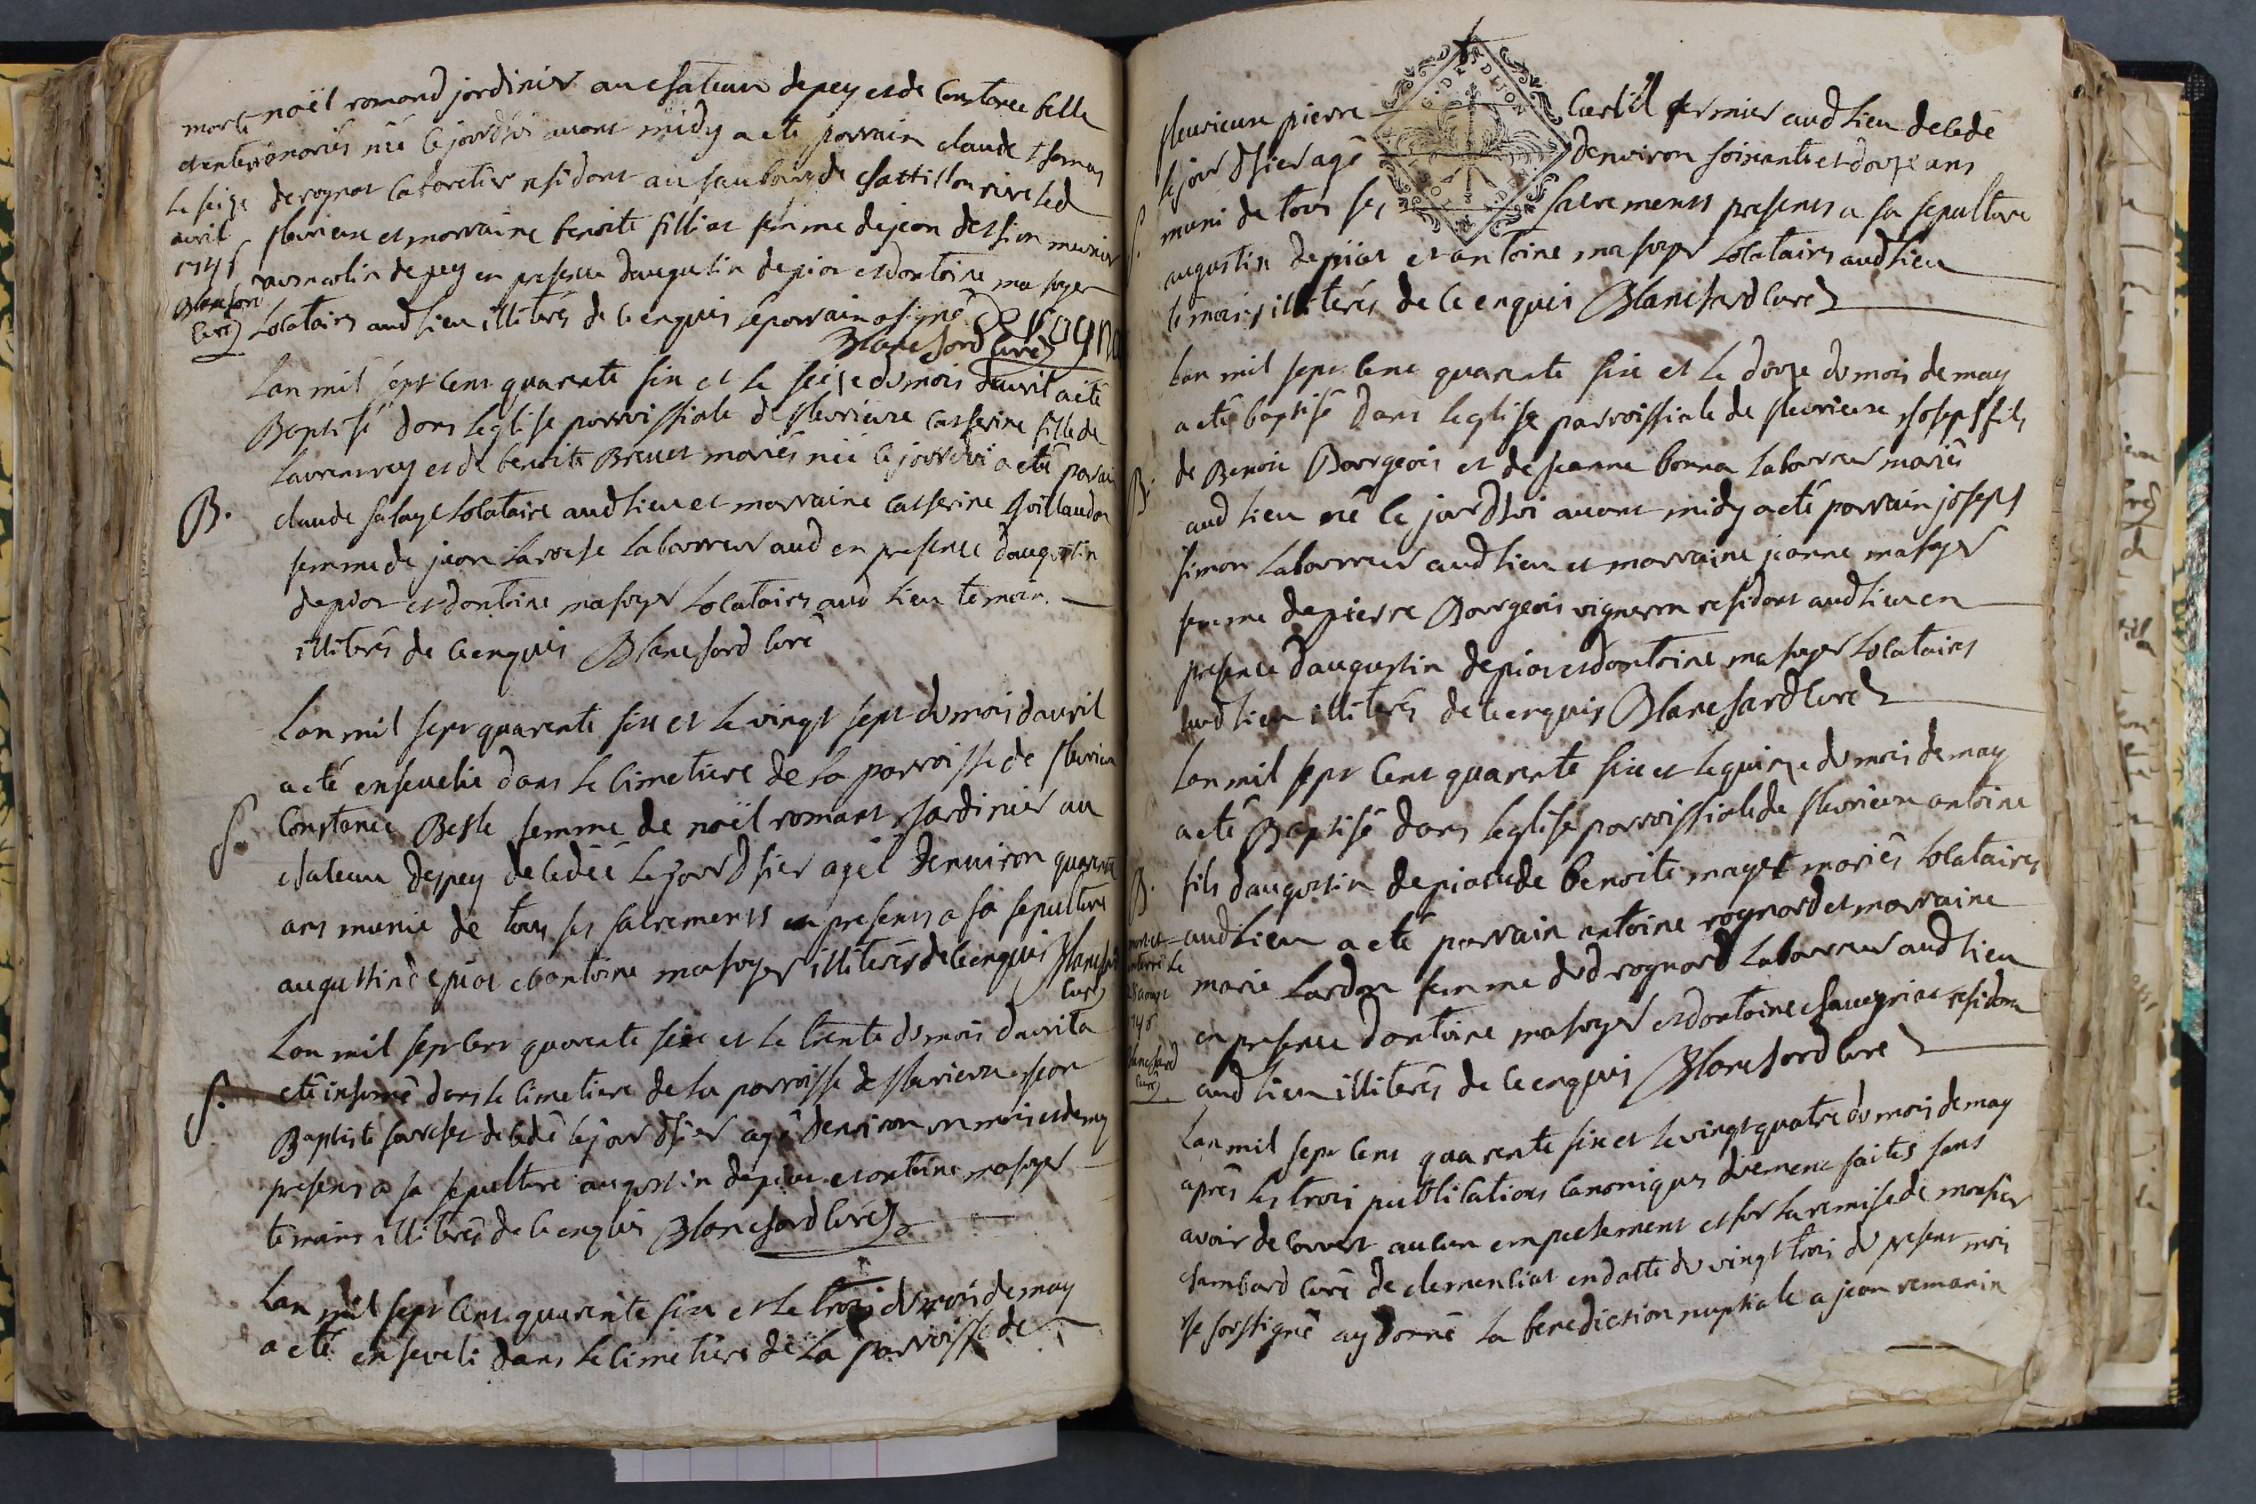 noël romand jordinier au chateau depey et de Constance belle
mariés né le jourdhui avant midy a eté parrain claude thomas
de rognat cabaretier residant au faubourg de chattillon rive led
fleurieux et marraine benoite filliat femme de jean dession munier
au moulin depey en presence daugustin depiat et dantoine masoyer
Locataires aud lieu illiterés de ce enquis le parrain a signé
Blanchard curé
morte
et enterrée
le seize
avril
1746
Blanchard
curé
Lan mil sept cent quarente six et le seize du mois davril a eté
Baptisé dans leglise parroissiale de fleurieux catherine fille de
Laurent rey et de benoite Brevet mariés née le jourdhui a eté parain
claude salaye Locataire aud lieu et marraine catherine Goillaudon
femme de jean laroche Laboureur aud en presence daugustin
depiat et dantoine masoyer Locataires aud lieu temoin
illiterés de ce enquis Blanchard curé
B.
Lan mil sept quarente six et le vingt sept du mois davril
a eté ensevelie dans le cimetiere de la parroisse de fleurieux
Constance Belle femme de noël romant Jardinier au
chateau depey decedée le jour dhier agée denviron quarente
ans munie de tous ses sacrements presents a sa sepulture
augustin depiat et antoine masoyer illiterés de ce enquis Blanchard
curé
S.
Lan mil sept cent quarente six et le trente du mois davril a
eté inhumé dans le cimetiere de la parroisse de fleurieux jean
Baptiste decedé le jour dhier agé denviron un mois et demy
presents a sa sepulture augustin depiat et antoine masoyer
temoins illiterés de ce enquis Blanchard curé
S.
Lan mil sept cent quarente six et le trois du mois de may
a eté enseveli dans le cimetiere de la parroisse de
fleurieux pierre Curtil fermier aud lieu decedé
le jour dhier agé denviron soixante et douze ans
muni de tous ses sacrements presents a sa sepulture
augustin depiat et antoine masoyer Locataires aud lieu
temoins illiterés de ce enquis Blanchard curé
S.
G. D. DIJON
Lan mil sept cent quarente six et le douze du mois de may
a eté baptisé dans leglise parroissiale de fleurieux joseph fils
de Benoit Bourgeois et de jeanne bonna Laboureur mariés
aud lieu né le jourdhui avant midy a eté parrain joseph
simon Laboureur aud lieu et marraine jeanne masoyer
femme de pierre Bourgeois vigneron residant aud lieu en
presence daugustin depiat et dantoine masoyer Locataires
aud lieu illiterés de ce enquis Blanchard curé
B.
Lan mil sept cent quarente six et le quinze du mois de may
a eté Baptisé dans leglise parroissiale de fleurieux antoine
fils daugustin depiat et de benoite mayet mariés Locataires
aud lieu a eté parrain antoine rognard et marraine
marie Lardon femme dud rognard Laboureur aud lieu
en presence dantoine masoyer et dantoine chauvgriat residans
aud lieu illiterés de ce enquis Blanchard curé
B.
mort et
enterré le
28 aoust
1746
Blanchard
curé
Lan mil sept cent quarente six et le vingt quatre du mois de may
après les trois publications canoniques düement faites sans
avoir decouvert aucun empechement et sur la remise de monsieur
chambard curé de clemenciat en datte du vingt trois du present mois
je soussigné ay donné la benediction nuptiale a jean remanin